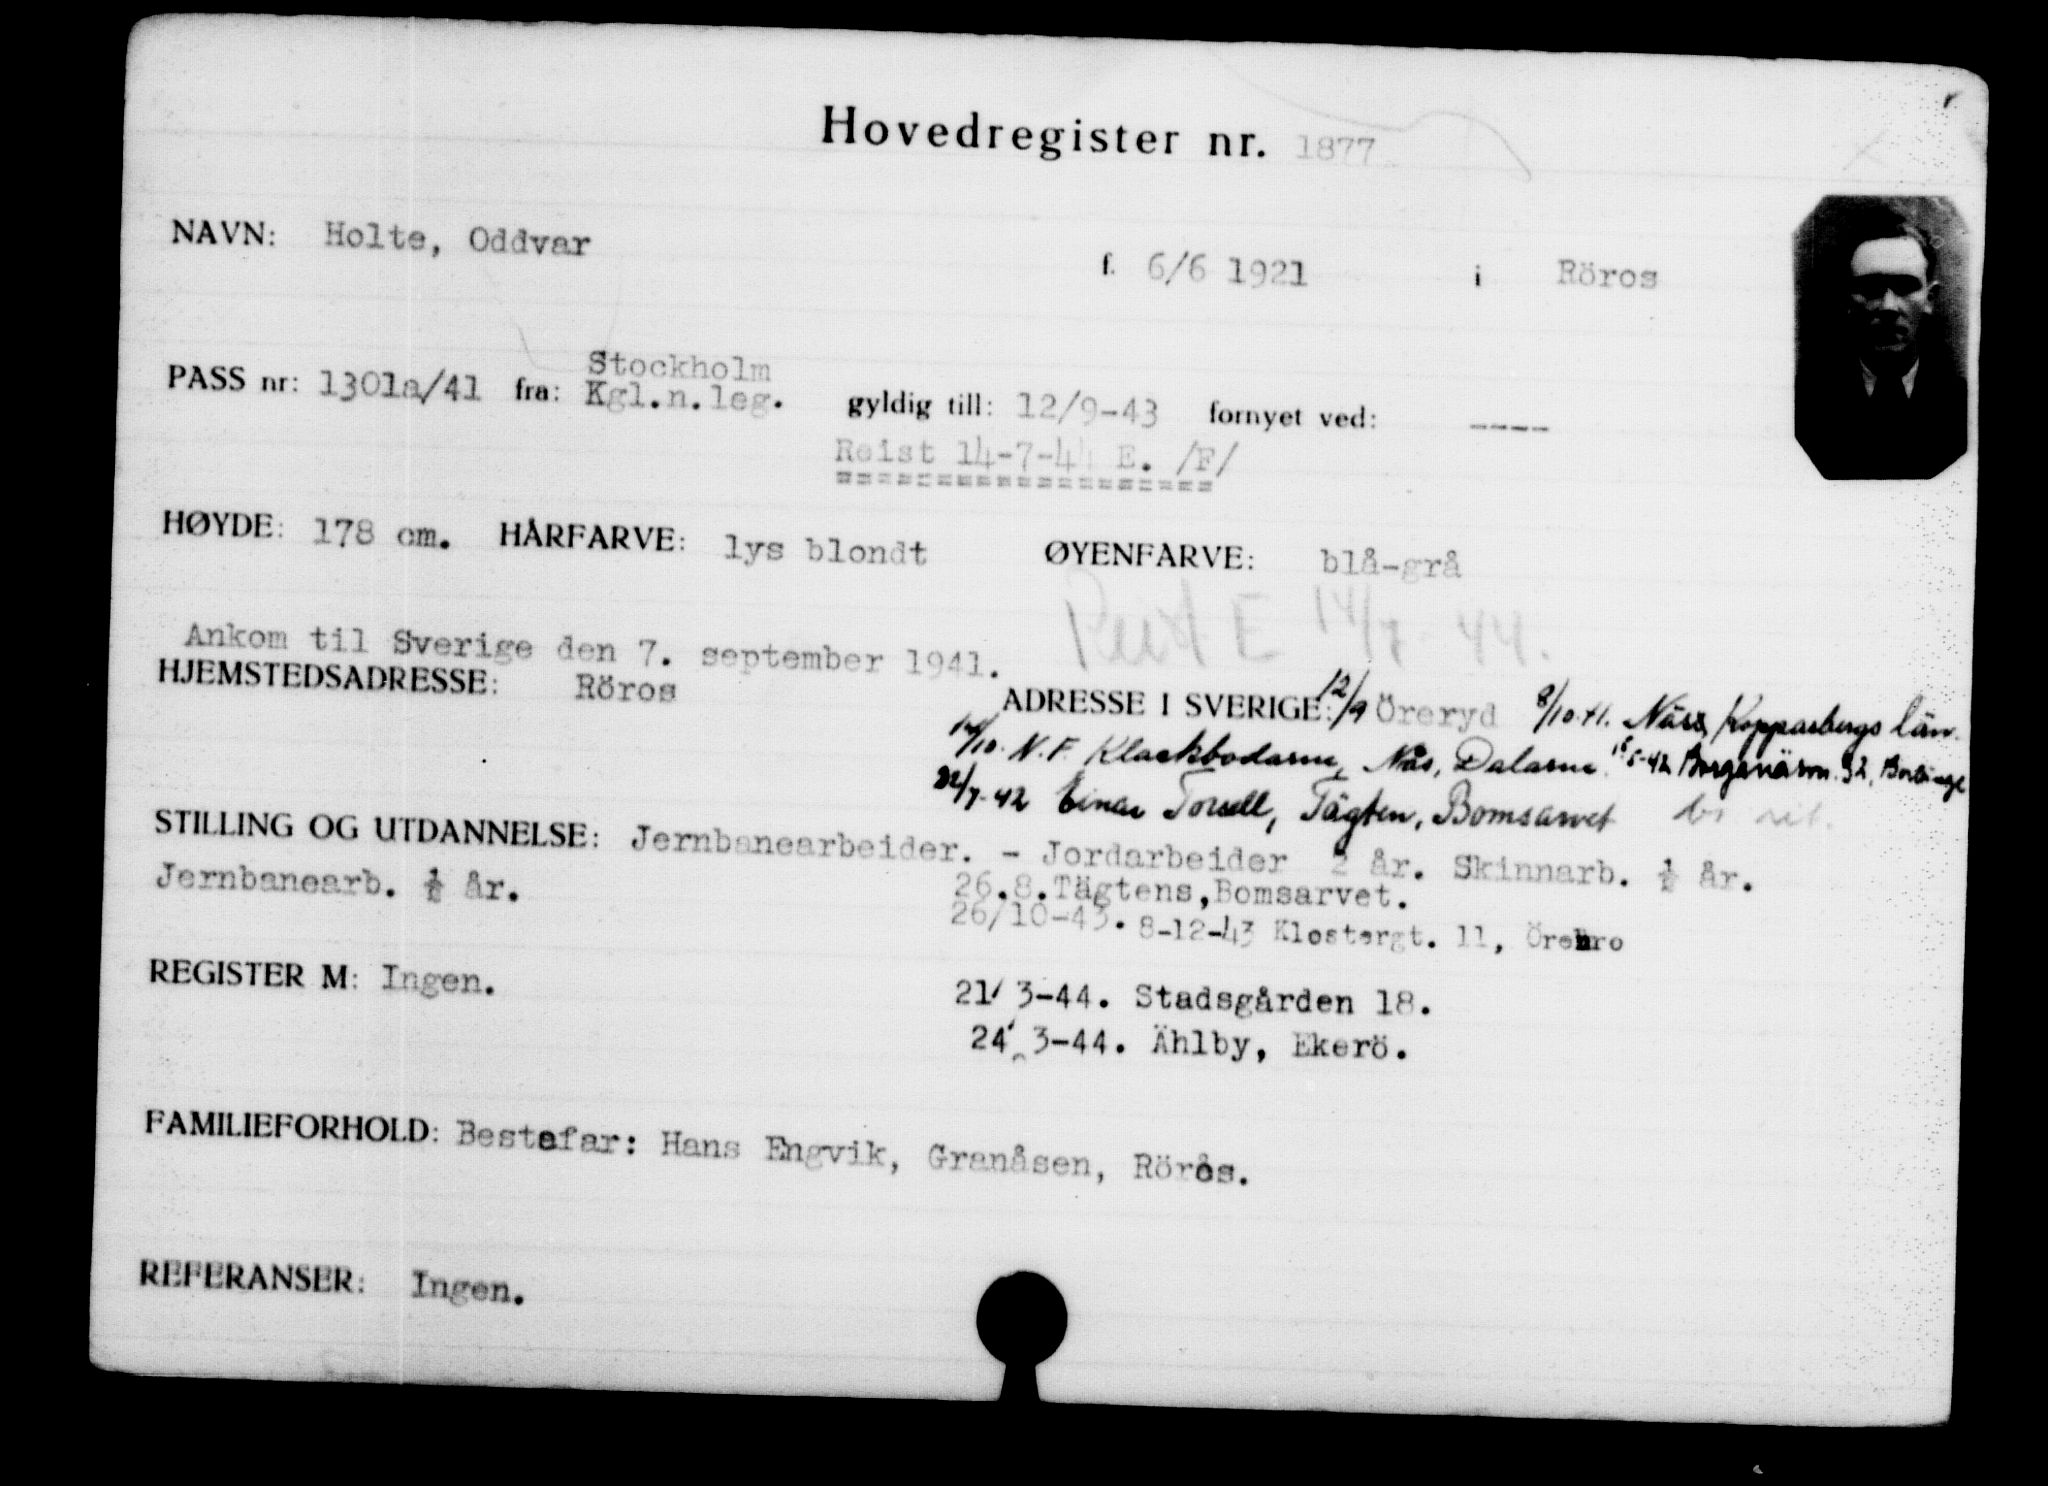 Hovedregister nr. 1877
NAVN: Holte, Oddvar f. 6/6 1921 i Röros
Stockholm
PASS nr: 1301a/41 fra: Kgl.n.leg. gyldig till: 12/9-43 fornyet ved: ----
Reist 14-7-44 E. /F/
===================
HØYDE: 178 cm. HÅRFARVE: lys blondt ØYENFARVE: blå-grå
Reist E 14/7 44.
Ankom til Sverige den 7. september 1941.
HJEMSTEDSADRESSE: Röros
ADRESSE I SVERIGE: 12/9 Öreryd 8/10.41. Nås, Kopparbergs län.
14/10. N.F. Klackbodarne, Nås, Dalarne. 15/5-42 Borganäsvn. 32, Borlänge
22/7-42 Einar Torsell, Tägten, Bomsarvet
STILLING OG UTDANNELSE: Jernbanearbeider. - Jordarbeider 2 år. Skinnarb. ½ år.
Jernbanearb. ½ år.
26.8.Tägtens,Bomsarvet.
26/10-43. 8-12-43 Klostergt. 11, Örebro
REGISTER M: Ingen.
21/3-44. Stadsgården 18.
24/3-44. Ählby, Ekerö.
FAMILIEFORHOLD: Bestefar: Hans Engvik, Granåsen, Röros.
REFERANSER: Ingen.